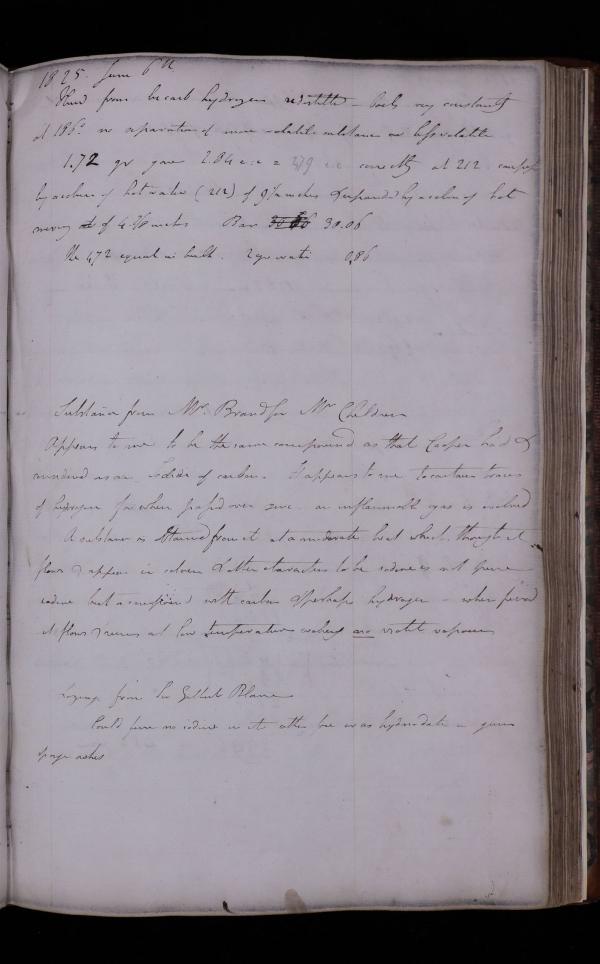 1825. June 6th
Fluid from bi carb hydrogen redistilled – boils very constantly
at 186° no separation of more volatile substance or less volatile
1.72 gr gave 2.84 c.c = c.c correctly at 212
by a column of hot water (212) of 9 inches & expanded by a column of hot
mercury of inches Bar 30.06
the equal in bulk 2 gr water 0.86
Substance from Mr. Brand for Mr Children
Appears to me to be the same compound as that Cooper had &
considered as an Iodide of carbon. It appears to me to contain traces
of hydrogen for when passed over zinc an inflammable gas is evolved
A substance is obtained from it at a moderate heat which though it
flows & appears in colour & other characters to be iodine is not pure
iodine but a compound with carbon & perhaps hydrogen – when fused
it flows & rises at low temperatures making no violet vapours
Lozenge from Sir Gilbert Blane
Could find no iodine in it either free or as hydriodate – gum
sponge ashes